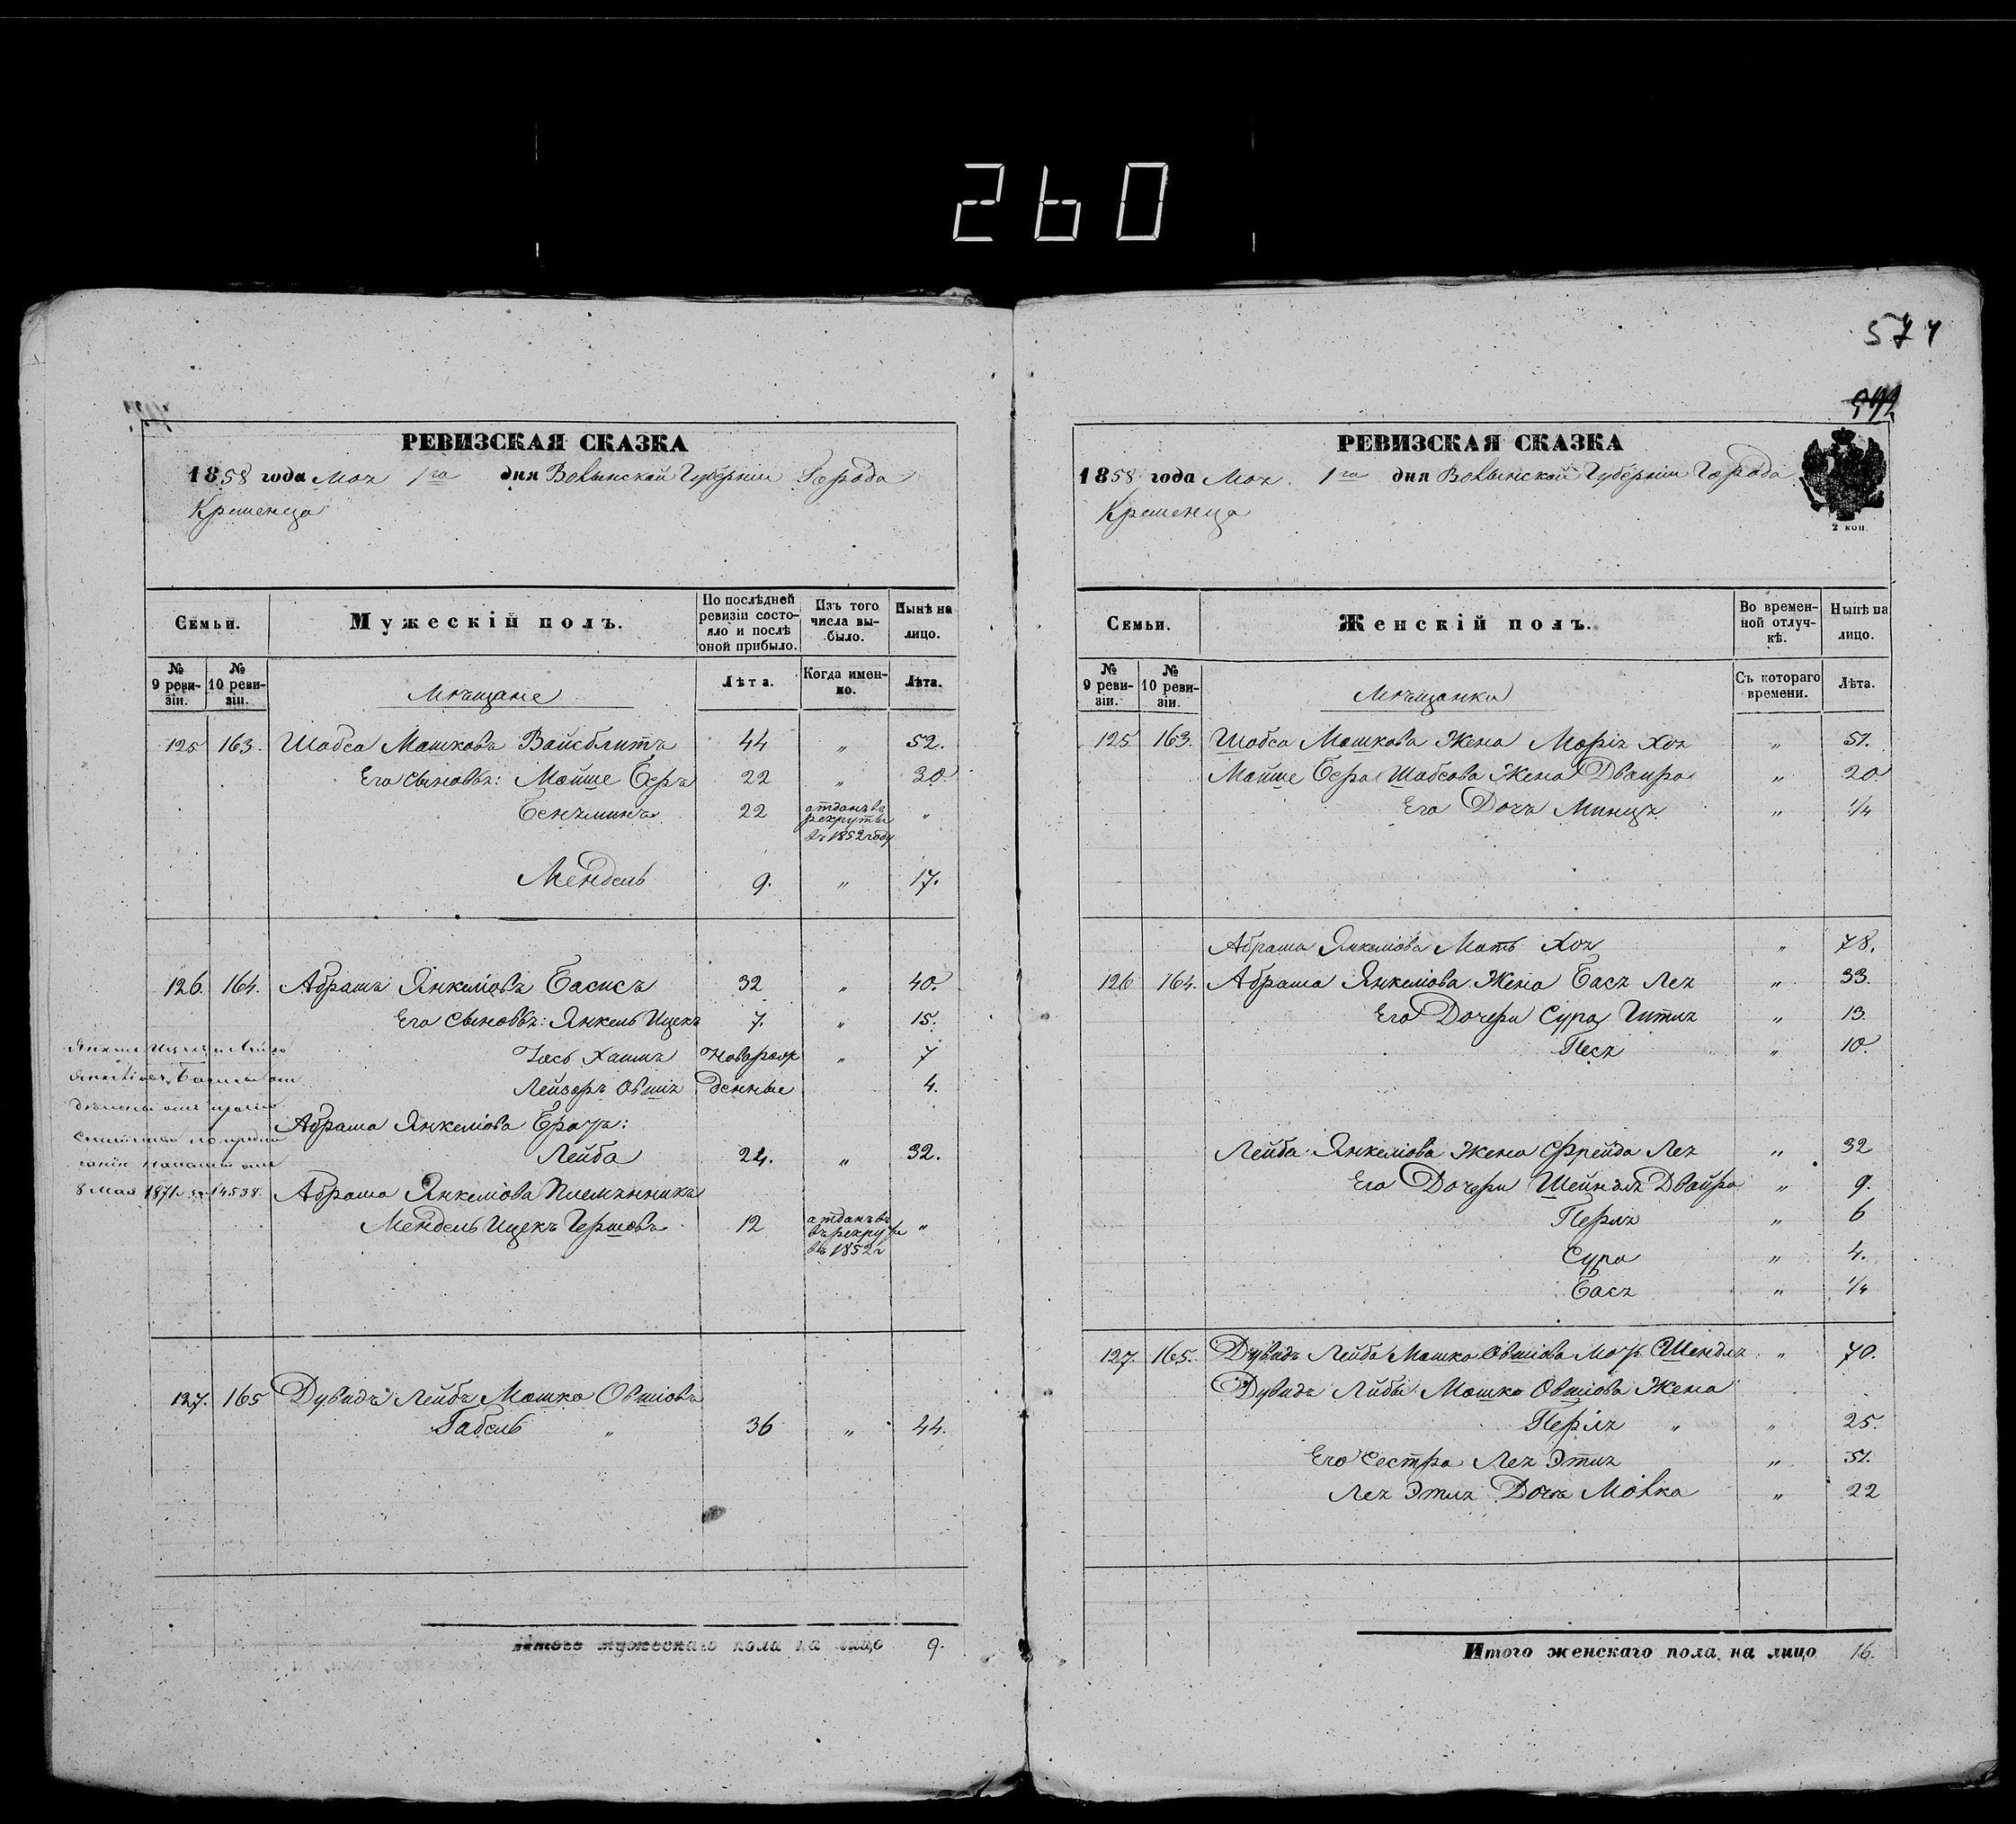 260
574
РЕВИЗСКАЯ СКАЗКА
1858 года Мая 1го дня Волынской Губернiи Города
Кременца
Семьи.
Мужескiй полъ.
По послѣдней ревизiи состояло и послѣ оной прибыло.
Изъ того числа выбыло.
Нынѣ на лицо.
№ 9 ревизiи.
№ 10 ревизiи.
Мѣщане
Лѣта.
Когда именно.
Лѣта.
125 163. Шабса Мошковъ Вайсблитъ 44 „ 52.
Его сыновья: Мойше Беръ 22 „ 30
Беньминъ 22 отданъ въ рекруты въ 1852 году „
Мендель 9. „ 17.
126. 164. Абрамъ Янкелiовъ Басисъ 32 „ 40.
Его Сыновья: Янкель Ицекъ 7. „ 15.
Iось Хаимъ Новорож „ 7
Лейзеръ Овшiя денные 4.
Абрама Янкелiова Братъ:
Лейба 24. „ 32.
Абрама Янкелiова Племянникъ
Мендель Ицекъ Гершовъ 12 отданъ въ рекруты въ 1852 г „
8 Мая 1871 г. 14538.
127. 165 Дувидъ Лейбъ Мошко Овшiовъ
Габель „ 36 „ 44.
Итого мужескаго пола на лицо 9.
РЕВИЗСКАЯ СКАЗКА
1858 года Мая 1го дня Волынской Губернiи Города
Кременца
2 коп.
Семьи.
Женскiй полъ.
Во временной отлучкѣ.
Нынѣ на лицо.
№ 9 ревизiи.
№ 10 ревизiи.
Мѣщанки
Съ котораго времени.
Лѣта.
125 163. Шабса Мошкова Жена Марiя Хая „ 51.
Мойше Бера Шабсова Жена Двайра „ 20
Его Дочь Минця „ 1/4
Абрама Янкелiова Мать Хая „ 78.
126 164. Абрама Янкелiова Жена Бася Лея „ 33.
Его Дочери Сура Гитля „ 13.
Песя „ 10.
Лейба Янкелiова Жена Фрейда Лея „ 32
Его Дочери Шейндля Двайра „ 9.
Перля „ 6
Сура „ 4.
Бася „ 1/4
127. 165. Дувидъ Лейба Мошко Овшiова Мать Шендля „ 70.
Дувидъ Лейбы Мошко Овшiова Жена
Перля „ „ 25.
Его Сестра Лея Этля „ 51.
Лея Этля Дочь Малка „ 22
Итого женскаго пола на лицо 16.